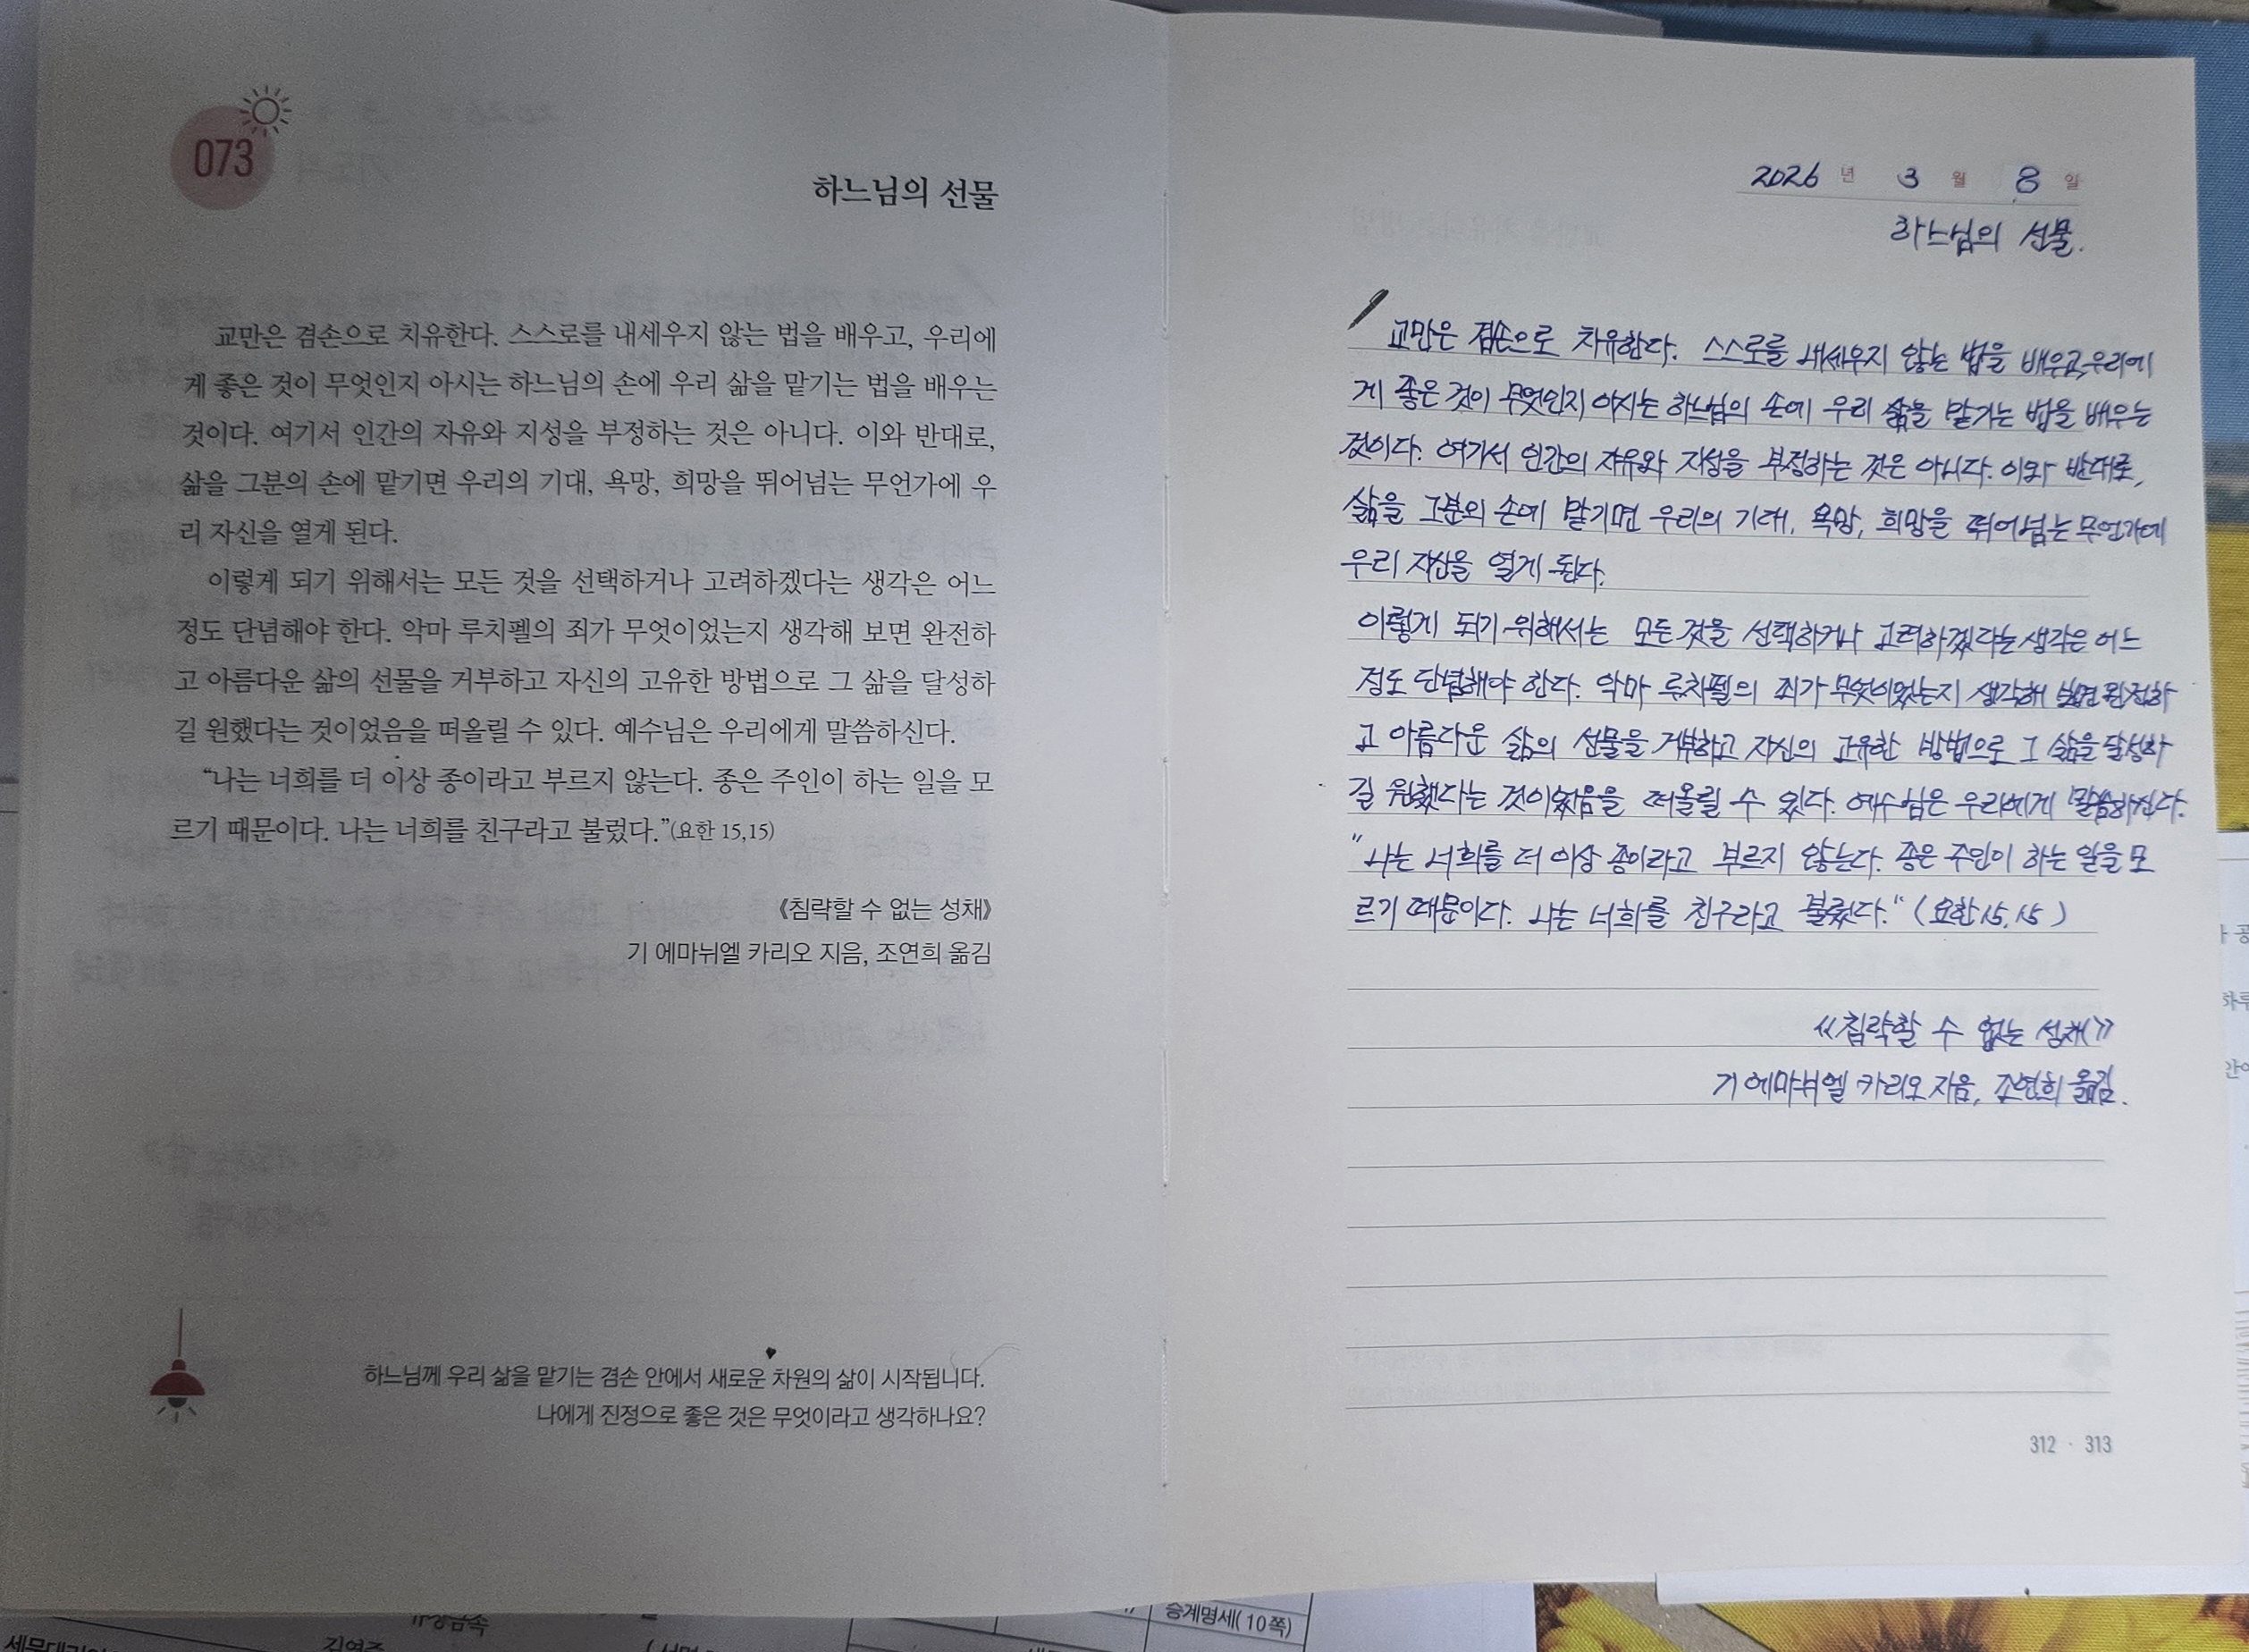 073
하느님의 선물
교만은 겸손으로 치유한다. 스스로를 내세우지 않는 법을 배우고, 우리에
게 좋은 것이 무엇인지 아시는 하느님의 손에 우리 삶을 맡기는 법을 배우는
것이다. 여기서 인간의 자유와 지성을 부정하는 것은 아니다. 이와 반대로,
삶을 그분의 손에 맡기면 우리의 기대, 욕망, 희망을 뛰어넘는 무언가에 우
리 자신을 열게 된다.
이렇게 되기 위해서는 모든 것을 선택하거나 고려하겠다는 생각은 어느
정도 단념해야 한다. 악마 루치펠의 죄가 무엇이었는지 생각해 보면 완전하
고 아름다운 삶의 선물을 거부하고 자신의 고유한 방법으로 그 삶을 달성하
길 원했다는 것이었음을 떠올릴 수 있다. 예수님은 우리에게 말씀하신다.
“나는 너희를 더 이상 종이라고 부르지 않는다. 종은 주인이 하는 일을 모
르기 때문이다. 나는 너희를 친구라고 불렀다.”(요한 15,15)
《침략할 수 없는 성채》
기 에마뉘엘 카리오 지음, 조연희 옮김
하느님께 우리 삶을 맡기는 겸손 안에서 새로운 차원의 삶이 시작됩니다.
나에게 진정으로 좋은 것은 무엇이라고 생각하나요?
2026 년 3 월 8 일
하느님의 선물.
교만은 겸손으로 치유한다. 스스로를 내세우지 않는 법을 배우고, 우리에
게 좋은 것이 무엇인지 아시는 하느님의 손에 우리 삶을 맡기는 법을 배우는
것이다. 여기서 인간의 자유와 지성을 부정하는 것은 아니다. 이와 반대로,
삶을 그분의 손에 맡기면 우리의 기대, 욕망, 희망을 뛰어넘는 무언가에
우리 자신을 열게 된다.
이렇게 되기 위해서는 모든 것을 선택하거나 고려하겠다는 생각은 어느
정도 단념해야 한다. 악마 루치펠의 죄가 무엇이었는지 생각해 보면 완전하
고 아름다운 삶의 선물을 거부하고 자신의 고유한 방법으로 그 삶을 달성하
길 원했다는 것이었음을 떠올릴 수 있다. 예수님은 우리에게 말씀하신다.
"나는 너희를 더 이상 종이라고 부르지 않는다. 종은 주인이 하는 일을 모
르기 때문이다. 나는 너희를 친구라고 불렀다." (요한 15, 15)
《침략할 수 없는 성채》
기 에마뉘엘 카리오 지음, 조연희 옮김.
312 · 313
승계명세(10쪽)